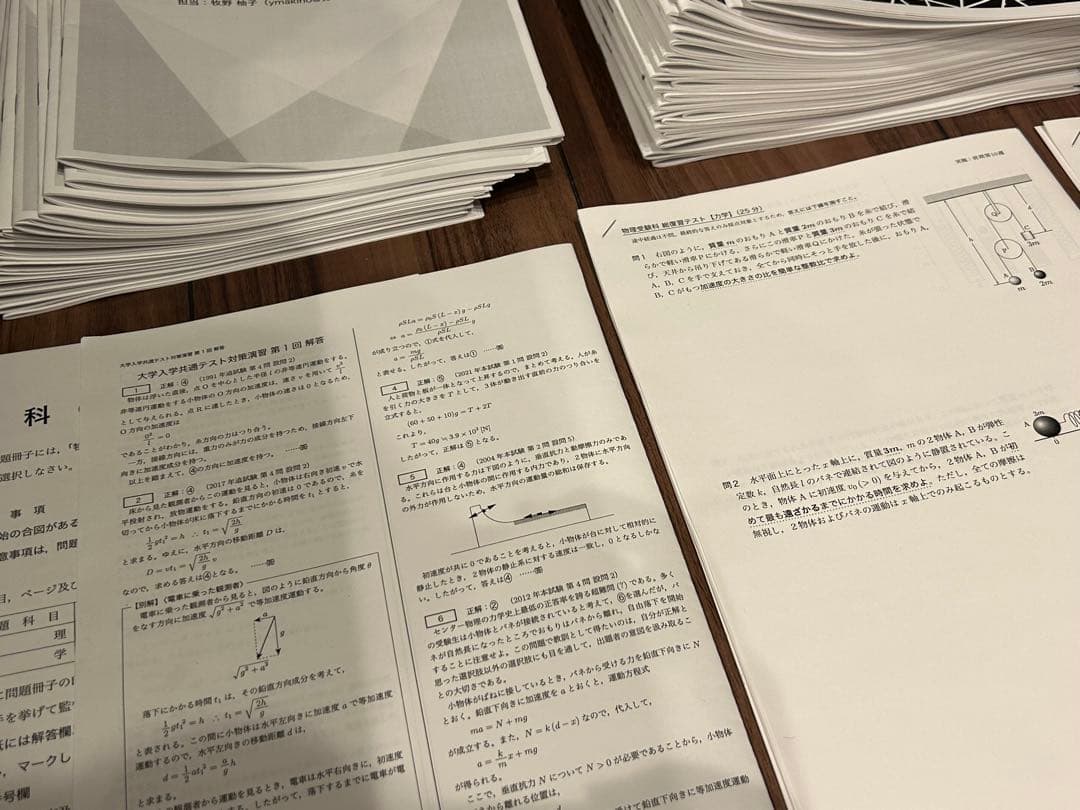 担当：牧野 柚子
科
題冊子には，
選択しなさい。
事 項
始の合図がある
意事項は，問題
目，ページ及び
題 科 目
理
学
に問題冊子の
手を挙げて監
紙には解答欄
，マークし
号欄
大学入学共通テスト対策演習 第1回 解答
大学入学共通テスト対策演習 第1回 解答
1 正解：④ (1991年追試験 第4問 設問2)
物体は浮いた直後，点Oを中心とした半径lの非等速円運動をする。
非等速円運動をする小物体のO方向の加速度は，速さvを用いて v²/l
として与えられる。点Rに達したとき，小物体の速さは0となるため，
O方向の加速度は
0²/l = 0
であることがわかり，糸方向の力はつり合う。
一方，接線方向には，重力のみが力の成分を持つため，接線方向左下
向きに加速度成分を持つ。
以上を踏まえて，④の方向に加速度を持つ。 ……答
2 正解：④ (2017年追試験 第4問 設問2)
床から見た観測者からこの運動を見ると，小物体は右向き初速vで水
平投射され，放物運動をする。鉛直方向の初速は0であるので，糸を
切ってから小物体が床に落下するまでにかかる時間をt₁とすると，
½gt₁² = h ∴ t₁ = √(2h/g)
と求まる。ゆえに，水平方向の移動距離Dは，
D = vt₁ = √(2h/g) v
なので，求める答えは④となる。 ……答
【別解】《電車に乗った観測者》
電車に乗った観測者から見ると，図のように鉛直方向から角度θ
をなす方向に加速度√(g²+a²)で等加速度運動する。
a
g
√(g²+a²)
落下にかかる時間t₁は，その鉛直方向成分を考えて，
½gt₁² = h ∴ t₁ = √(2h/g)
と表される。この間に小物体は水平左向きに加速度aで等加速度
運動するので，水平左向きの移動距離dは，
d = ½at₁² = (a/g)h
と求まる。
の観測者から運動を見るとき，電車は水平右向きに，初速度
する。したがって，落下するまでに電車が電
ρSLa = ρ₀S(L−x)g − ρSLg
⇔ a = (ρ₀(L−x)−ρSL)/(ρSL) g
が成り立つので，①式を代入して，
a = mg/(ρSL)
と表せる。したがって，答えは① ……答
4 正解：⑤ (2021年本試験 第1問 設問2)
人と荷物と板が一体となって上昇するので，まとめて考える。人が糸
を引く力の大きさをTとして，3体が動き出す直前の力のつり合いを
立式すると，
(60+50+10)g = T+2T
これより，
T = 40g ≒ 3.9×10² [N]
したがって，正解は⑤となる。
5 正解：④ (2004年本試験 第2問 設問5)
水平方向に作用する力は下図のように，垂直抗力と動摩擦力のみであ
る。これらは台と小物体の間に作用する内力であり，2物体に水平方向
の外力が作用しないため，水平方向の運動量の総和は保存する。
初速度が共に0であることを考えると，小物体が台に対して相対的に
静止したとき，2物体の静止系に対する速度は一致し，0となるしかな
い。したがって，答えは④ ……答
6 正解：② (2012年本試験 第4問 設問2)
センター物理の力学史上最低の正答率を誇る超難問(?)である。多く
の受験生は小物体とバネが接続されていると考えて，⑥を選んだが，バ
ネが自然長になったところでおもりはバネから離れ，自由落下を開始
することに注意せよ。この問題で教訓として得たいのは，自分が正解と
思った選択肢以外の選択肢にも目を通して，出題者の意図を汲み取るこ
との大切さである。
小物体がばねに接しているとき，バネから受ける力を鉛直下向きにN
とおく。鉛直下向きに加速度をaとおくと，運動方程式
ma = N+mg
が成立する。また，N = k(d−x)なので，代入して，
a = (k/m)x+mg
が得られる。
ここで，垂直抗力NについてN>0が必要であることから，小物体
から離れる位置は，
て鉛直下向きに等加速度運動
物理受験科 総復習テスト【力学】(25分)
途中経過は不問，最終的な答えのみ採点対象とするため，答えには下線を施すこと。
問1 右図のように，質量mのおもりAと質量2mのおもりBを糸で結び，滑
らかで軽い滑車Pにかける。さらにこの滑車Pと質量3mのおもりCを糸で結
び，天井から吊り下げてある滑らかで軽い滑車Qにかけた。糸が張った状態で
A，B，Cを手で支えておき，全てから同時にそっと手を放した後に，おもりA，
B，Cがもつ加速度の大きさの比を簡単な整数比で求めよ。
C
3m
A
B
m
2m
問2 水平面上にとったx軸上に，質量3m，mの2物体A，Bが弾性
定数k，自然長lのバネで連結されて図のように静置されている。こ
のとき，物体Aに初速度v₀(>0)を与えてから，2物体A，Bが初
めて最も遠ざかるまでにかかる時間を求めよ。ただし，全ての摩擦は
無視し，2物体およびバネの運動はx軸上でのみ起こるものとする。
3m
A
0